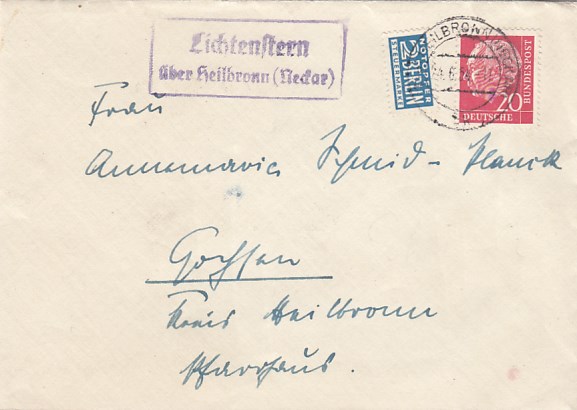 Lichtenstern
über Heilbronn (Neckar)
NOTOPFER
2 BERLIN
STEUERMARKE
HEILBRONN
20
DEUTSCHE
BUNDESPOST
Frau
Annemarie Schmid-Planck
Gochsen
Kreis Heilbronn
Pfarrhaus.